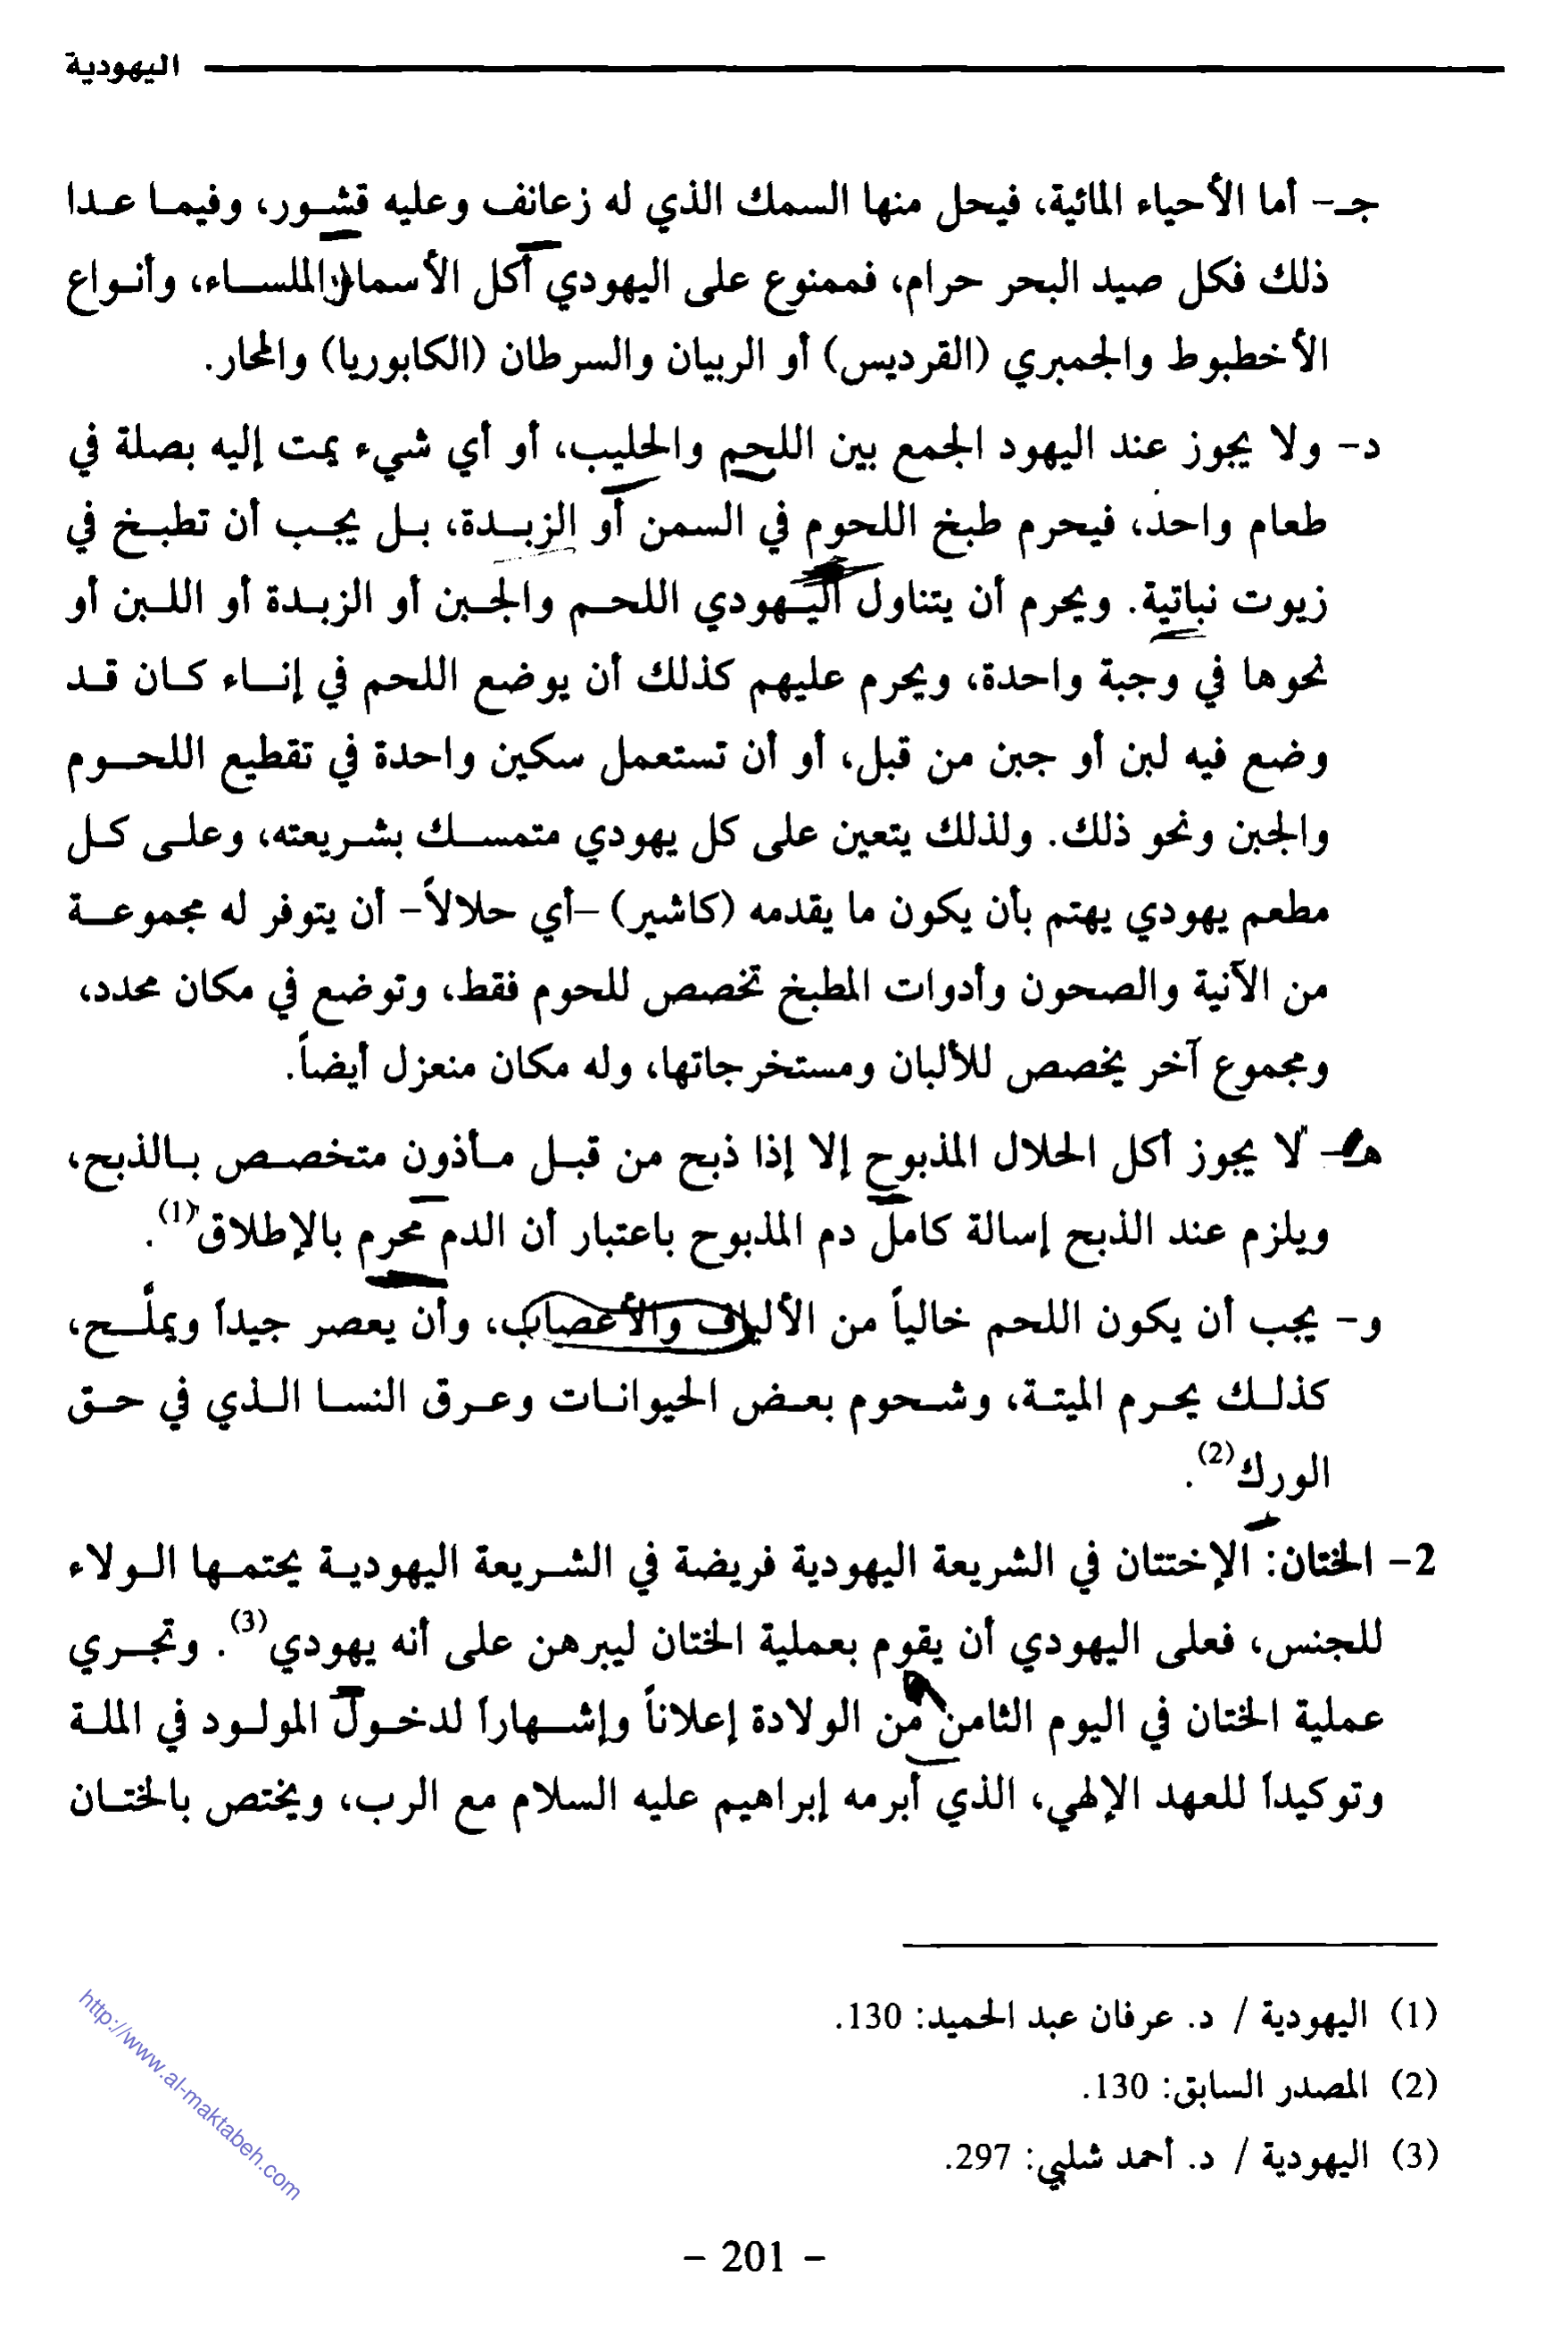 اليهودية
جـ- أما الأحياء المائية، فيحل منها السمك الذي له زعانف وعليه قشور، وفيما عدا
ذلك فكل صيد البحر حرام، فممنوع على اليهودي أكل الأسماك الملساء، وأنواع
الأخطبوط والجمبري (القرديس) أو الربيان والسرطان (الكابوريا) والمحار.
د- ولا يجوز عند اليهود الجمع بين اللحم والحليب، أو أي شيء يمت إليه بصلة في
طعام واحد، فيحرم طبخ اللحوم في السمن أو الزبدة، بل يجب أن تطبخ في
زيوت نباتية. ويحرم أن يتناول اليهودي اللحم والجبن أو الزبدة أو اللبن أو
نحوها في وجبة واحدة، ويحرم عليهم كذلك أن يوضع اللحم في إناء كان قد
وضع فيه لبن أو جبن من قبل، أو أن تستعمل سكين واحدة في تقطيع اللحوم
والجبن ونحو ذلك. ولذلك يتعين على كل يهودي متمسك بشريعته، وعلى كل
مطعم يهودي يهتم بأن يكون ما يقدمه (كاشير) -أي حلالاً- أن يتوفر له مجموعة
من الآنية والصحون وأدوات المطبخ تخصص للحوم فقط، وتوضع في مكان محدد،
ومجموع آخر يخصص للألبان ومستخرجاتها، وله مكان منعزل أيضاً.
هـ- لا يجوز أكل الحلال المذبوح إلا إذا ذبح من قبل مأذون متخصص بالذبح،
ويلزم عند الذبح إسالة كامل دم المذبوح باعتبار أن الدم محرم بالإطلاق(1).
و- يجب أن يكون اللحم خالياً من الألياف والأعصاب، وأن يعصر جيداً ويملَّح،
كذلك يحرم الميتة، وشحوم بعض الحيوانات وعرق النسا الذي في حق
الورك(2).
2- الختان: الإختتان في الشريعة اليهودية فريضة في الشريعة اليهودية يحتمها الولاء
للجنس، فعلى اليهودي أن يقوم بعملية الختان ليبرهن على أنه يهودي(3). وتجري
عملية الختان في اليوم الثامن من الولادة إعلاناً وإشهاراً لدخول المولود في الملة
وتوكيداً للعهد الإلهي، الذي أبرمه إبراهيم عليه السلام مع الرب، ويختص بالختان
(1) اليهودية / د. عرفان عبد الحميد: 130.
(2) المصدر السابق: 130.
(3) اليهودية / د. أحمد شلبي: 297.
http://www.al-maktabeh.com
- 201 -